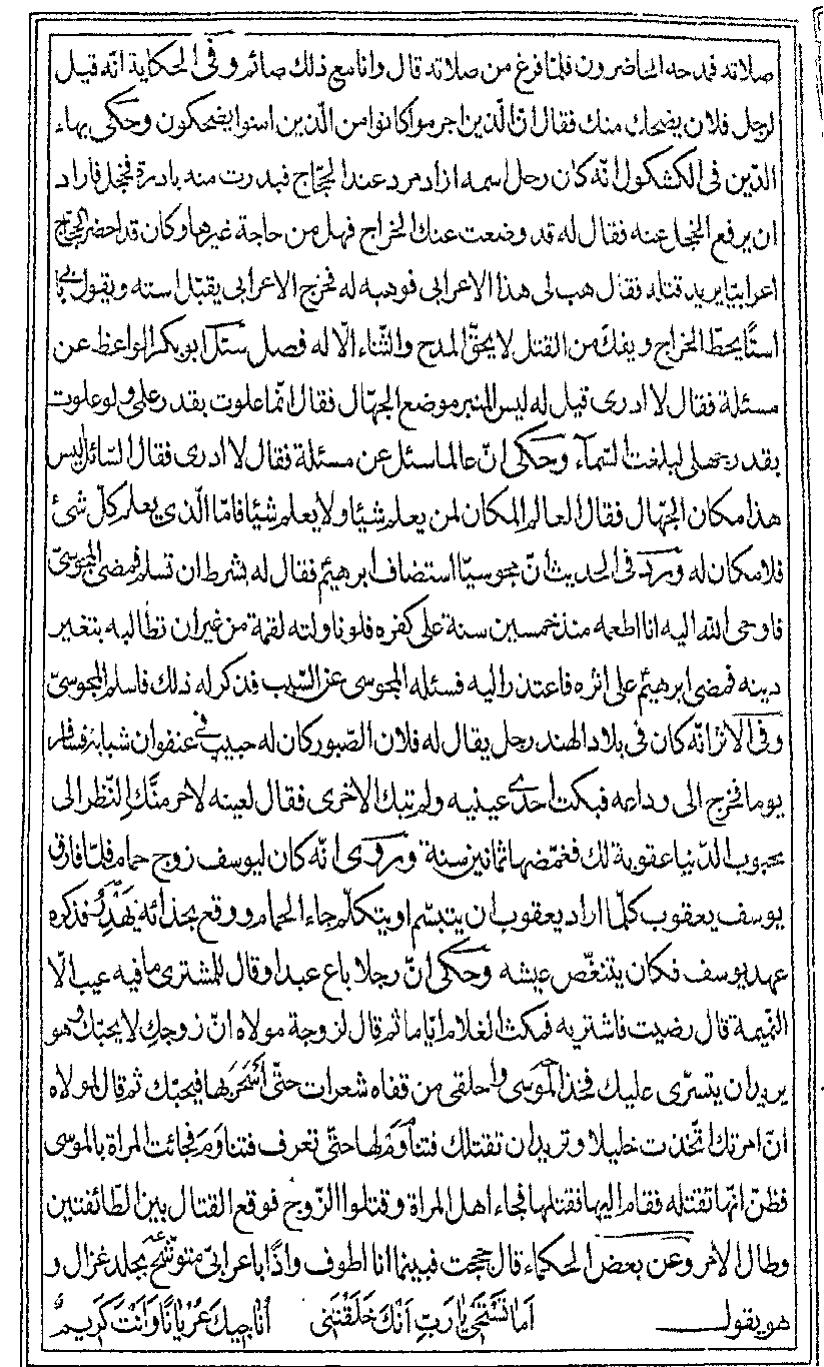 صلاته فمدحه الحاضرون فلمّا فرغ من صلاته قال وانا مع ذلك صائم وفى الحكاية انّه قيل
لرجل فلان يضحك منك فقال انّ الّذين اجرموا كانوا من الّذين امنوا يضحكون وحكى بهاء
الدّين فى الكشكول انّه كان رجل اسمه ازاد مرد عند الحجّاج فبدرت منه بادرة فخجل فاراد
ان يرفع الخجل عنه فقال له قد وضعت عنك الخراج فهل من حاجة غيرها وكان قد احضر الحجّاج
اعرابيّا يريد قتله فقال هب لى هذا الاعرابى فوهبه له فخرج الاعرابى يقبّل استه ويقول بابى
استًا يحطّ الخراج ويفكّ من القتل لا يحقّ المدح والثّناء الّا له فصل سئل ابوبكر الواعظ عن
مسئلة فقال لا ادرى قيل له ليس المنبر موضع الجهّال فقال انّما علوت بقدر علمى ولو علوت
بقدر جهلى لبلغت السّمآء وحكى انّ عالما سئل عن مسئلة فقال لا ادرى فقال السّائل ليس
هذا مكان الجهّال فقال العالم المكان لمن يعلم شيئا ولا يعلم شيئا فامّا الّذى يعلم كلّ شئ
فلا مكان له وورد فى الحديث انّ مجوسيّا استضاف ابرهيمؑ فقال له بشرط ان تسلم فمضى المجوسىّ
فاوحى اللّه اليه انا اطعمه منذ خمسين سنة على كفره فلو ناولته لقمة من غير ان تطالبه بتغير
دينه فمضى ابرهيمؑ على اثره فاعتذر اليه فسئله المجوسى عن السّبب فذكر له ذلك فاسلم المجوسىّ
وفى الاثر انّه كان فى بلاد الهند رجل يقال له فلان الصّبور كان له حبيب فى عنفوان شبابه فسافر
يوما فخرج الى وداعه فبكت احدى عينيه ولم تبك الاخرى فقال لعينه لاحرمنّك النّظر الى
محبوب الدّنيا عقوبة لك فغمّضها ثمانين سنة وروى انّه كان ليوسف زوج حمام فلمّا فارق
يوسف يعقوب كلّما اراد يعقوب ان يتبسّم او يتكلّم جاء الحمام ووقع بحذائه يَهْدِرُ فذكره
عهد يوسف فكان يتنغّص عيشه وحكى انّ رجلا باع عبدا وقال للمشترى ما فيه عيب الّا
النّميمة قال رضيت فاشتريه فمكث الغلام ايّاما ثم قال لزوجة مولاه انّ زوجكِ لا يحبّك وهو
يريد ان يتسرّى عليك فخذ الموسى واحلقى من قفاه شعرات حتّى أَسْحَرَ بها فيحبّك ثم قال لمولاه
انّ امرتك اتّخذت خليلا وتريد ان تقتلك فتناوَمْ لها حتّى تعرف فتناوَمَ فجائت المراة بالموسى
فظنّ انّها تقتله فقام اليها فقتلها فجاء اهل المراة وقتلوا الزّوج فوقع القتال بين الطّائفتين
وطال الامر وعن بعض الحكماء قال حججت فبينما انا اطوف واذًا باعرابىّ متوشّحٌ بجلد غزال و
هو يقول اَما تَسْتَحْيِ يا رَبِّ اَنْتَ خَلَقْتَنى اُناجيكَ عُرْيانًا وَاَنْتَ كَريمٌ